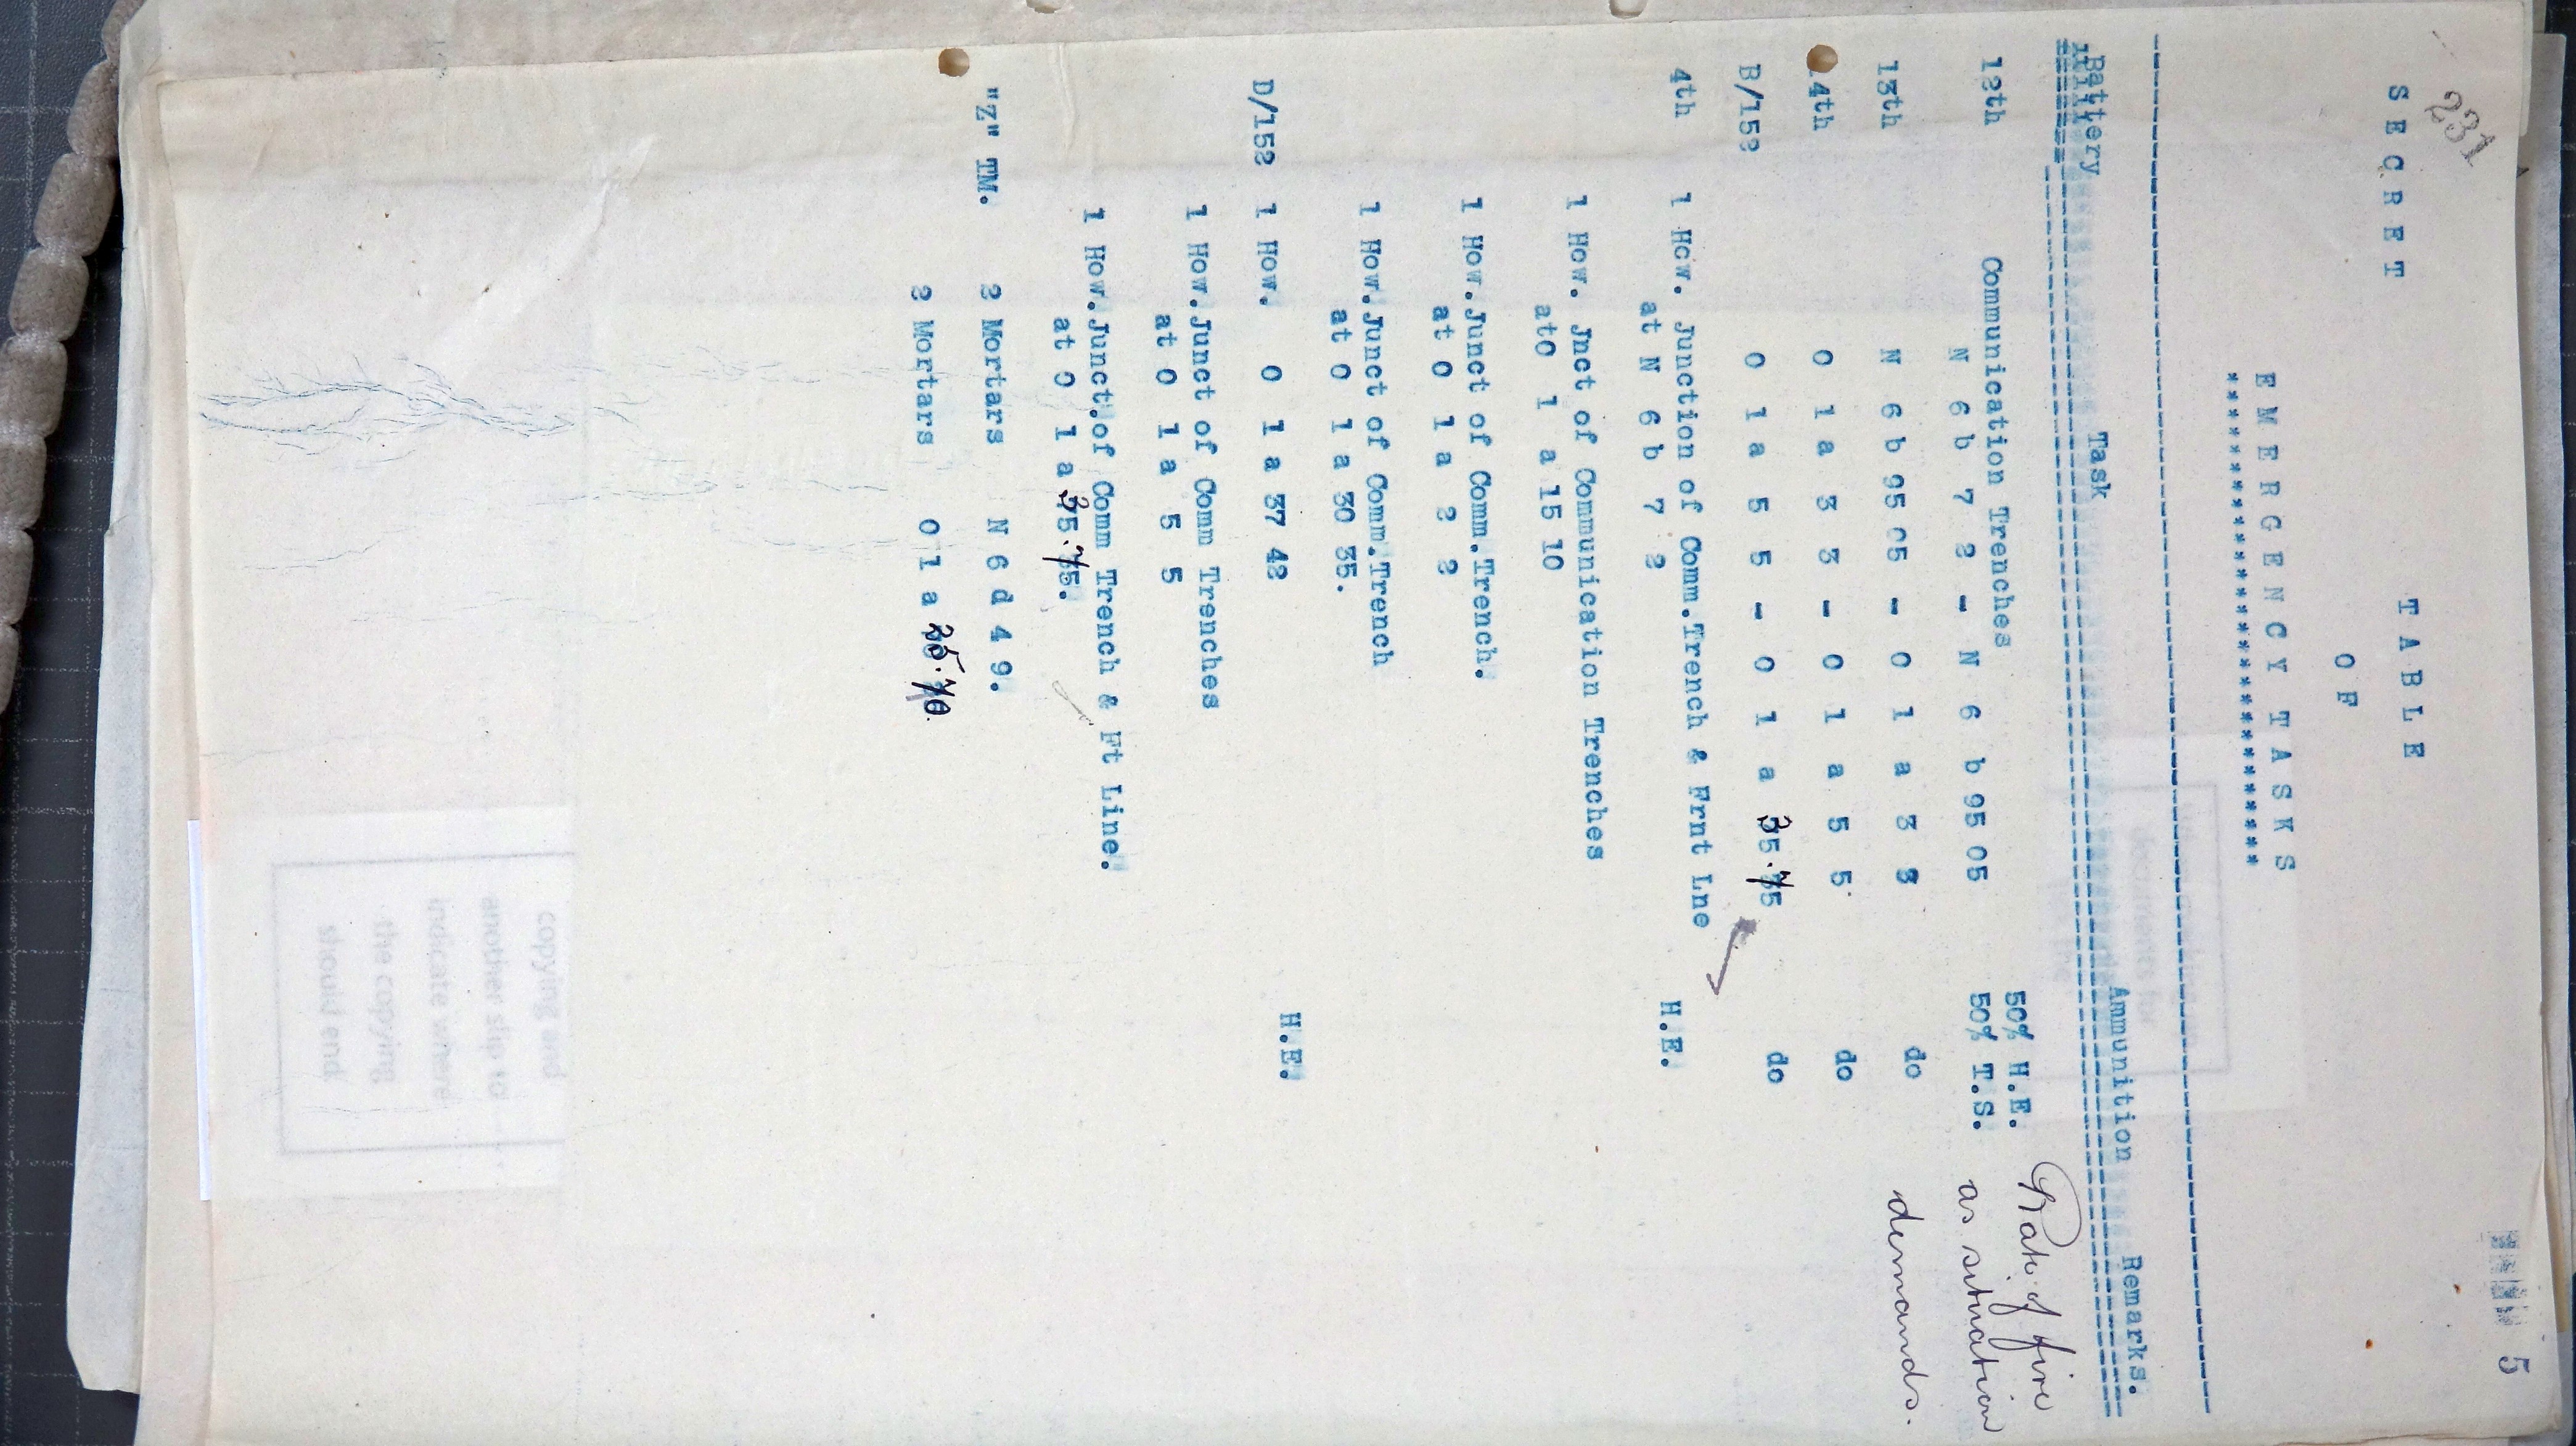 231
5
S E C R E T
T A B L E
O F
E M E R G E N C Y T A S K S
************************
Battery Task Ammunition Remarks.
12th Communication Trenches 50% H.E. Rate of fire
N 6 b 7 2 - N 6 b 95 05 50% T.S. as situation
13th N 6 b 95 05 - O 1 a 3 3 do demands.
14th O 1 a 3 3 - O 1 a 5 5 do
B/152 O 1 a 5 5 - O 1 a 35.75 do
4th 1 How. Junction of Comm.Trench & Frnt Lne H.E.
at N 6 b 7 2
1 How. Jnct of Communication Trenches
at0 1 a 15 10
1 How.Junct of Comm.Trench.
at O 1 a 2 2
1 How.Junct of Comm.Trench
at O 1 a 30 35.
D/152 1 How. O 1 a 37 42 H.E.
1 How.Junct of Comm Trenches
at O 1 a 5 5
1 How.Junct.of Comm Trench & Ft Line.
at O 1 a 35.75.
"Z" TM. 2 Mortars N 6 d 4 9.
2 Mortars O 1 a 35.70.
copying and
another slip to
indicate where
the copying
should end